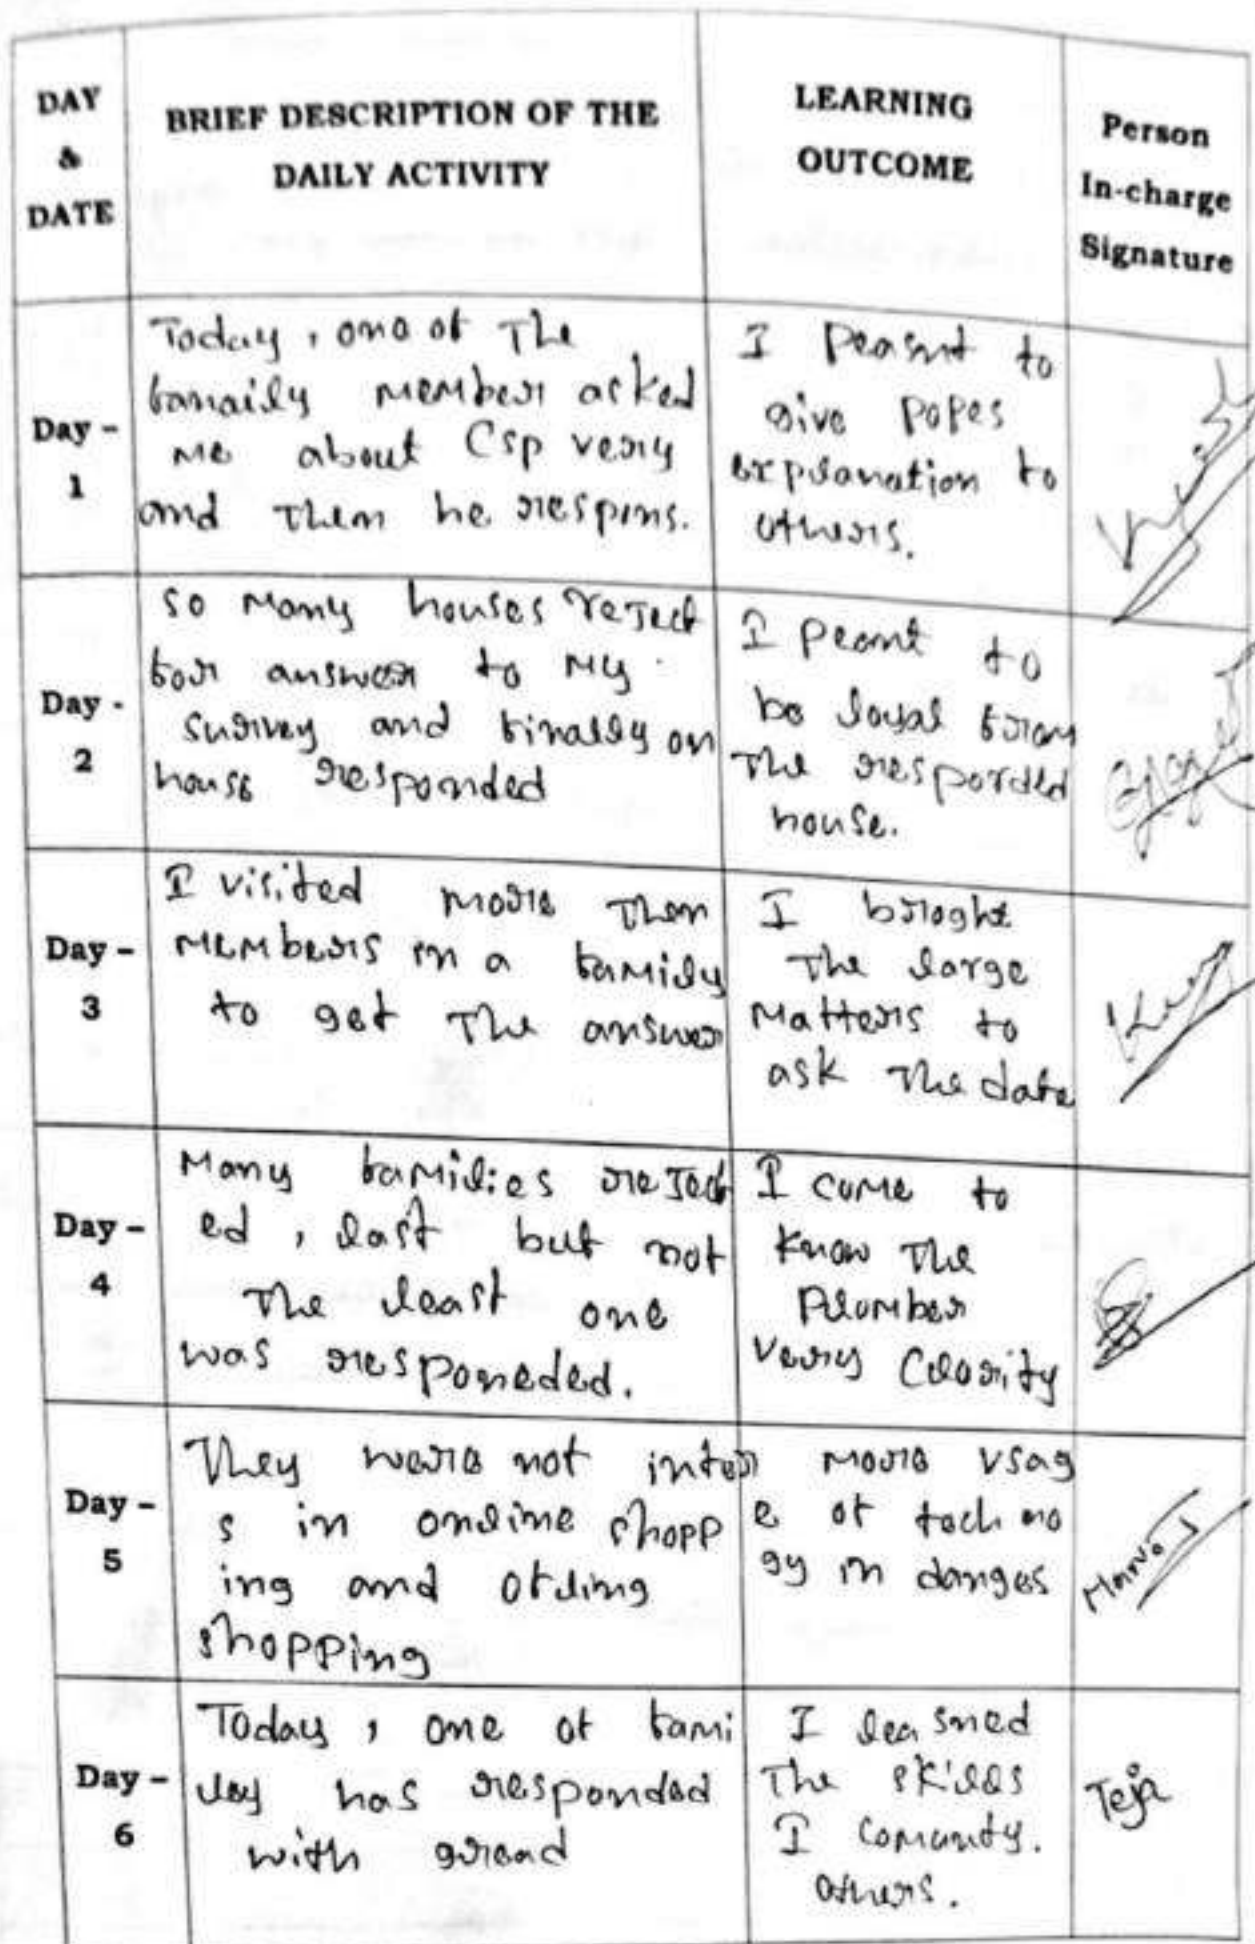 DAY
&
DATE
BRIEF DESCRIPTION OF THE
DAILY ACTIVITY
LEARNING
OUTCOME
Person
In-charge
Signature
Day -
1
Today, one of The
member asked
me about Csp very
and Then he respons.
I to
give
explanation to
others.
Day -
2
so many houses reject
for answer to my
survey and finally on
house responded
I to
be loyal from
The responded
house.
Day -
3
I visited more Then
members in a family
to get The answer
I broght
The large
Matters to
ask The data
Day -
4
Many families reject
ed, last but not
The least one
was responeded.
I come to
know The
Plumber
very Clearity
Day -
5
They were not inter
s in online shopp
ing and ofling
shopping
more usag
e of techno
gy in danges
Manoj
Day -
6
Today, one of fami
ley has responded
with
I learned
The skills
I comunty.
others.
Teja